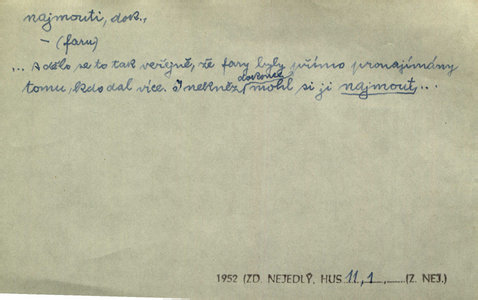 najmouti, dok.,
– (faru)
... A dělo se to tak veřejně, že fary byly přímo pronajímány
tomu, kdo dal více. I nekněz dokonce mohl si ji najmout, ...
1952 (ZD. NEJEDLÝ, HUS 11, 1, ......(Z. NEJ.)